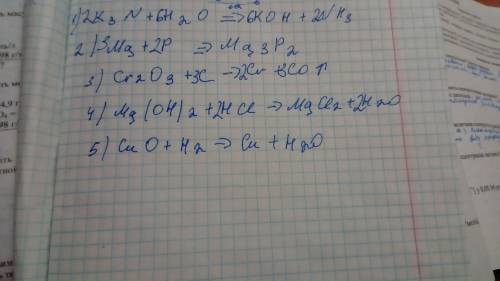 1) 2K3N + 6H2O => 6KOH + 2NH3
2) 3Mg + 2P => Mg3P2
3) Cr2O3 + 3C -> 2Cr + 3CO↑
4) Mg(OH)2 + 2HCl -> MgCl2 + 2H2O
5) CuO + H2 -> Cu + H2O